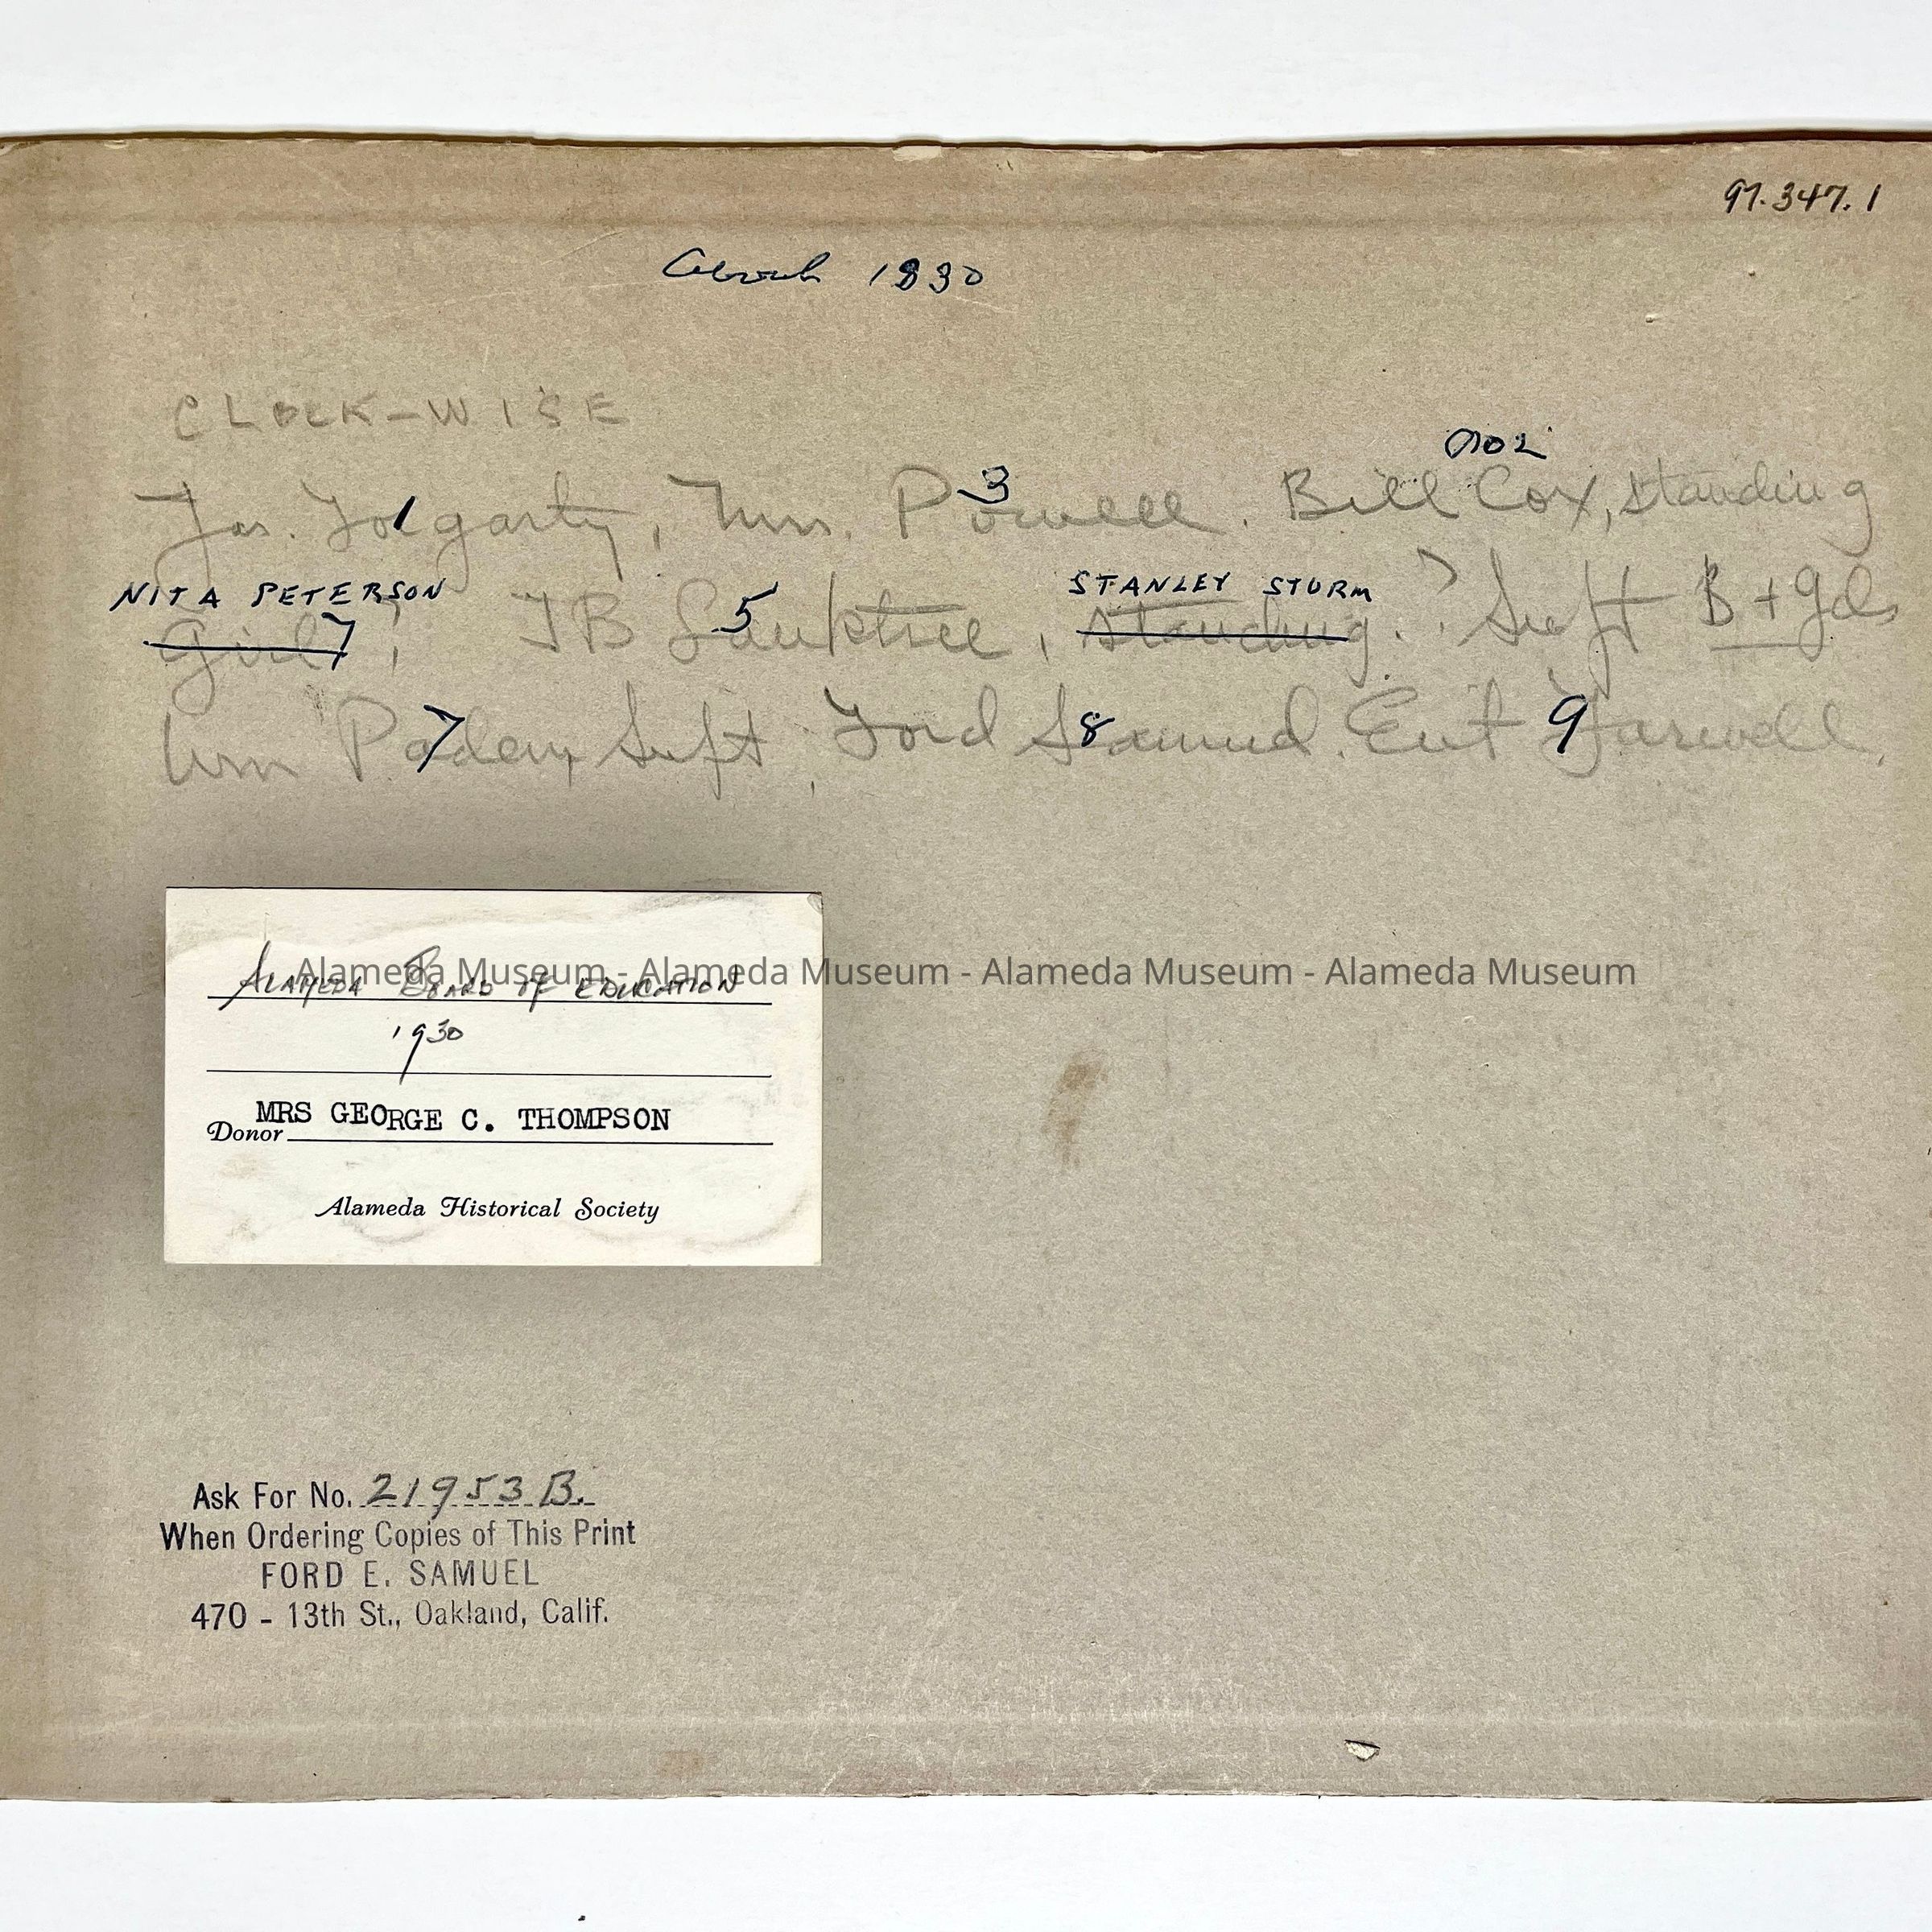 97.347.1
About 1930
CLOCK-WISE
No 2
Jas. Fogarty, Mrs. Powell. Bill Cox, standing
1 3
NITA PETERSON STANLEY STURM
Girl?, JB Lanktree, standing. ? Supt B + Gds
5
Wm Paden, Supt, Ford Samuel. Ent Farwell,
7 8 9
ALAMEDA BOARD OF EDUCATION
1930
MRS GEORGE C. THOMPSON
Donor
Alameda Historical Society
Alameda Museum - Alameda Museum - Alameda Museum - Alameda Museum
Ask For No. 21953 B.
When Ordering Copies of This Print
FORD E. SAMUEL
470 - 13th St., Oakland, Calif.